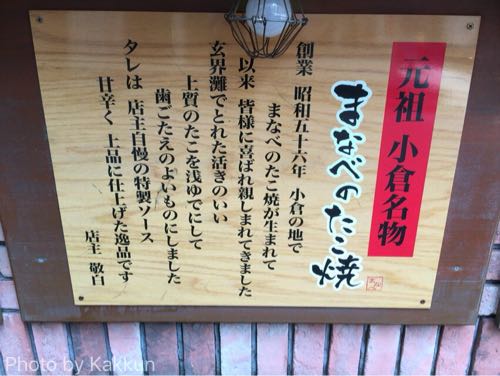 元祖 小倉名物
まなべのたこ焼
創業 昭和五十六年 小倉の地で
まなべのたこ焼が生まれて
以来 皆様に喜ばれ親しまれてきました
玄界灘でとれた活きのいい
上質のたこを浅ゆでにして
歯ごたえのよいものにしました
タレは 店主自慢の特製ソース
甘辛く 上品に仕上げた逸品です
店主 敬白
Photo by Kakkun